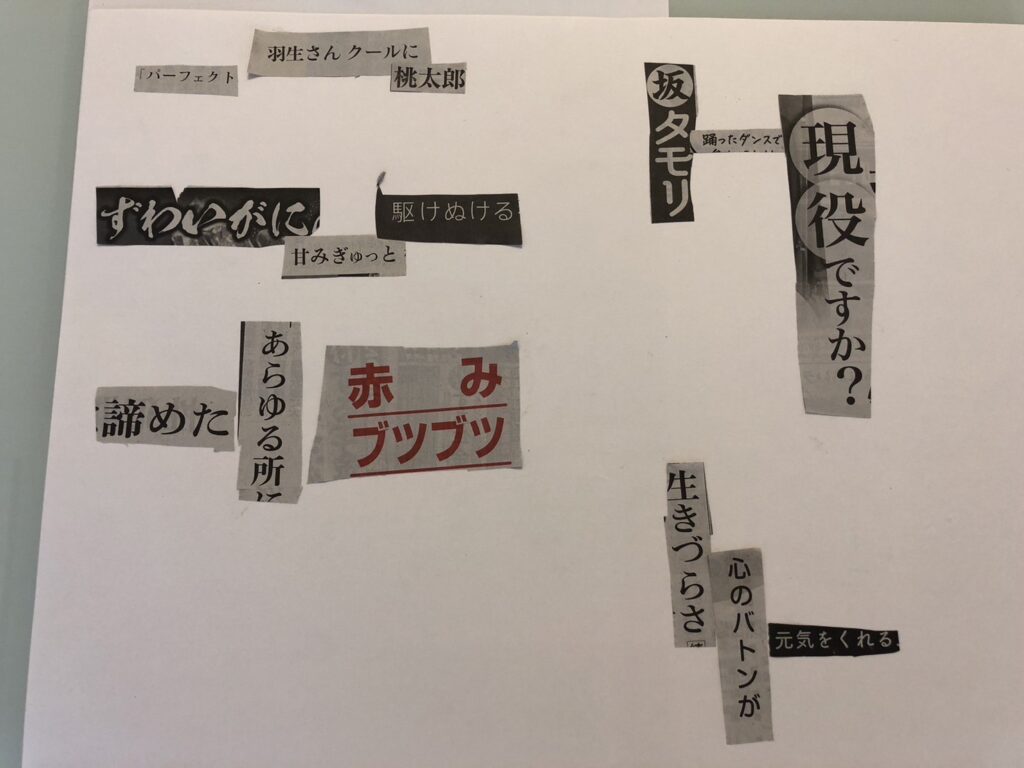 「パーフェクト
羽生さん クールに
桃太郎
ずわいがに
甘みぎゅっと
駆けぬける
諦めた
あらゆる所に
赤み
ブツブツ
坂タモリ
踊ったダンスで
現役ですか?
生きづらさ
心のバトンが
元気をくれる